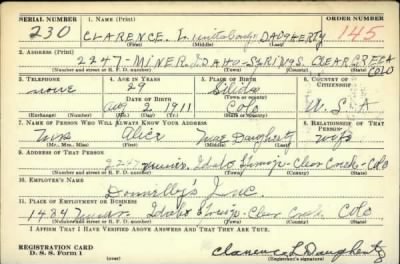 SERIAL NUMBER 1. NAME (Print) ORDER NUMBER
230 CLARENCE L DAUGHERTY 145
(First) (Middle) (Last)
2. ADDRESS (Print)
2247 - MINER. IDAHO-SPRINGS. CLEAR CREEK COLO
(Number and street or R. F. D. number) (Town) (County) (State)
3. TELEPHONE 4. AGE IN YEARS 5. PLACE OF BIRTH 6. COUNTRY OF CITIZENSHIP
none 29
DATE OF BIRTH (Town or county)
Aug 2 1911 Colo U.S.A
(Exchange) (Number) (Mo.) (Day) (Yr.) (State or country)
7. NAME OF PERSON WHO WILL ALWAYS KNOW YOUR ADDRESS 8. RELATIONSHIP OF THAT PERSON
Mrs Alice Mae Daugherty wife
(Mr., Mrs., Miss) (First) (Middle) (Last)
9. ADDRESS OF THAT PERSON
2247 Miner, Idaho Springs - Clear Creek - Colo
(Number and street or R. F. D. number) (Town) (County) (State)
10. EMPLOYER'S NAME
Inc.
11. PLACE OF EMPLOYMENT OR BUSINESS
1484 Miner Idaho Springs - Clear Creek Colo
(Number and street or R. F. D. number) (Town) (County) (State)
I AFFIRM THAT I HAVE VERIFIED ABOVE ANSWERS AND THAT THEY ARE TRUE.
REGISTRATION CARD
D. S. S. Form 1 (over) Clarence L Daugherty
(Registrant's signature)